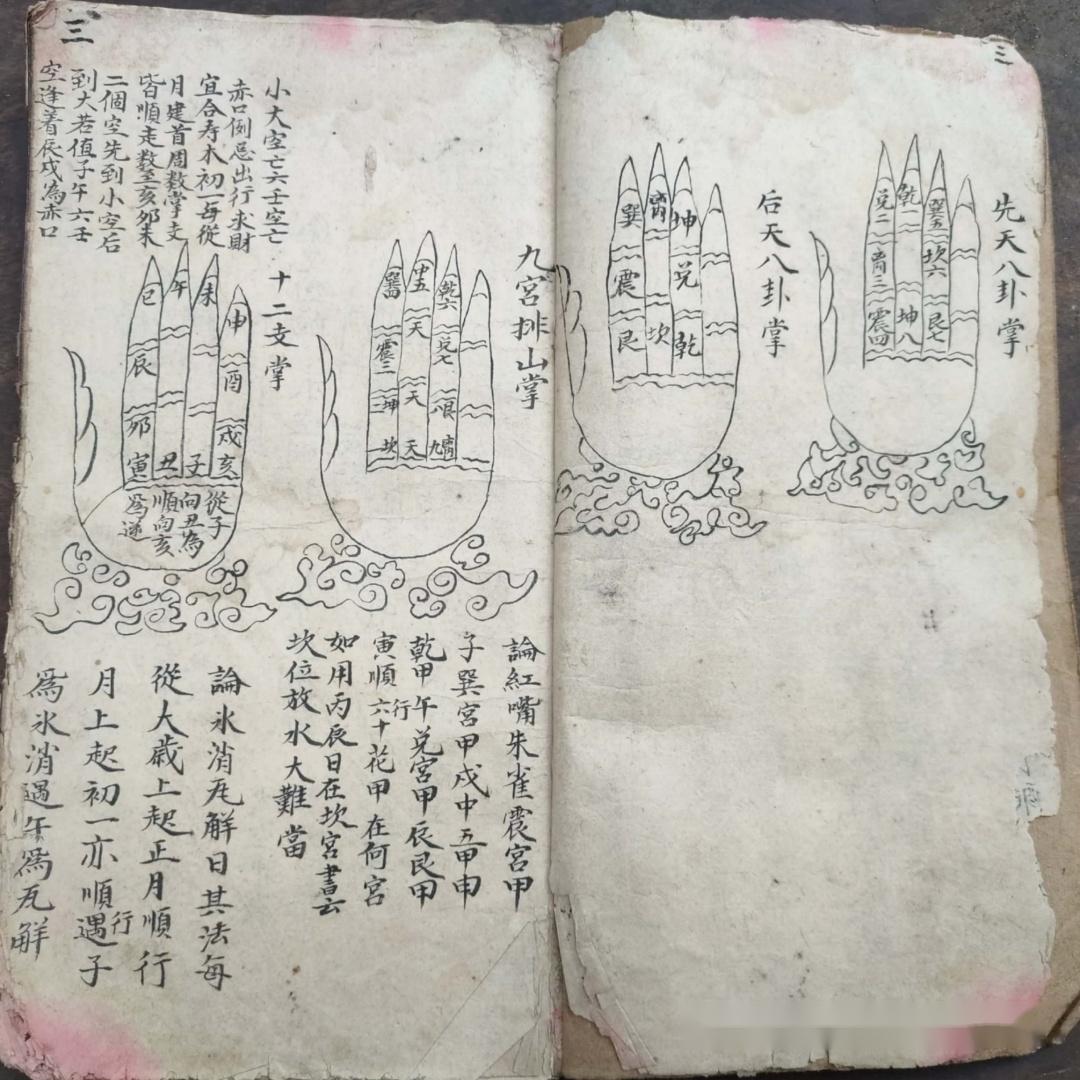 三
先天八卦掌
兑二
离三
震四
乾一
坤八
巽五
坎六
艮七
后天八卦掌
巽
震
艮
离
坎
坤
兑
乾
三
九宮排山掌
巽四
震三
坤二
坎一
中五
天
天
天
乾六
兑七
艮八
离九
十二支掌
子
丑
寅
卯
辰
巳
午
未
申
酉
戌
亥
從子
向丑為
順向亥
為逆
小大空亡六壬空亡
赤口例忌出行求財
宜合寿木初一每從
月建首周数掌支
皆順走数至亥卯未
二個空先到小空后
到大若值子午六壬
空逢着辰戌為赤口
論紅嘴朱雀震宮甲
子巽宮甲戌中五甲申
乾甲午兑宮甲辰艮甲
寅順行六十花甲在何宮
如用丙辰日在坎宮書云
坎位放水大難當
論氷消瓦解日其法每
從大歳上起正月順行
月上起初一亦順行遇子
為氷消遇午為瓦解